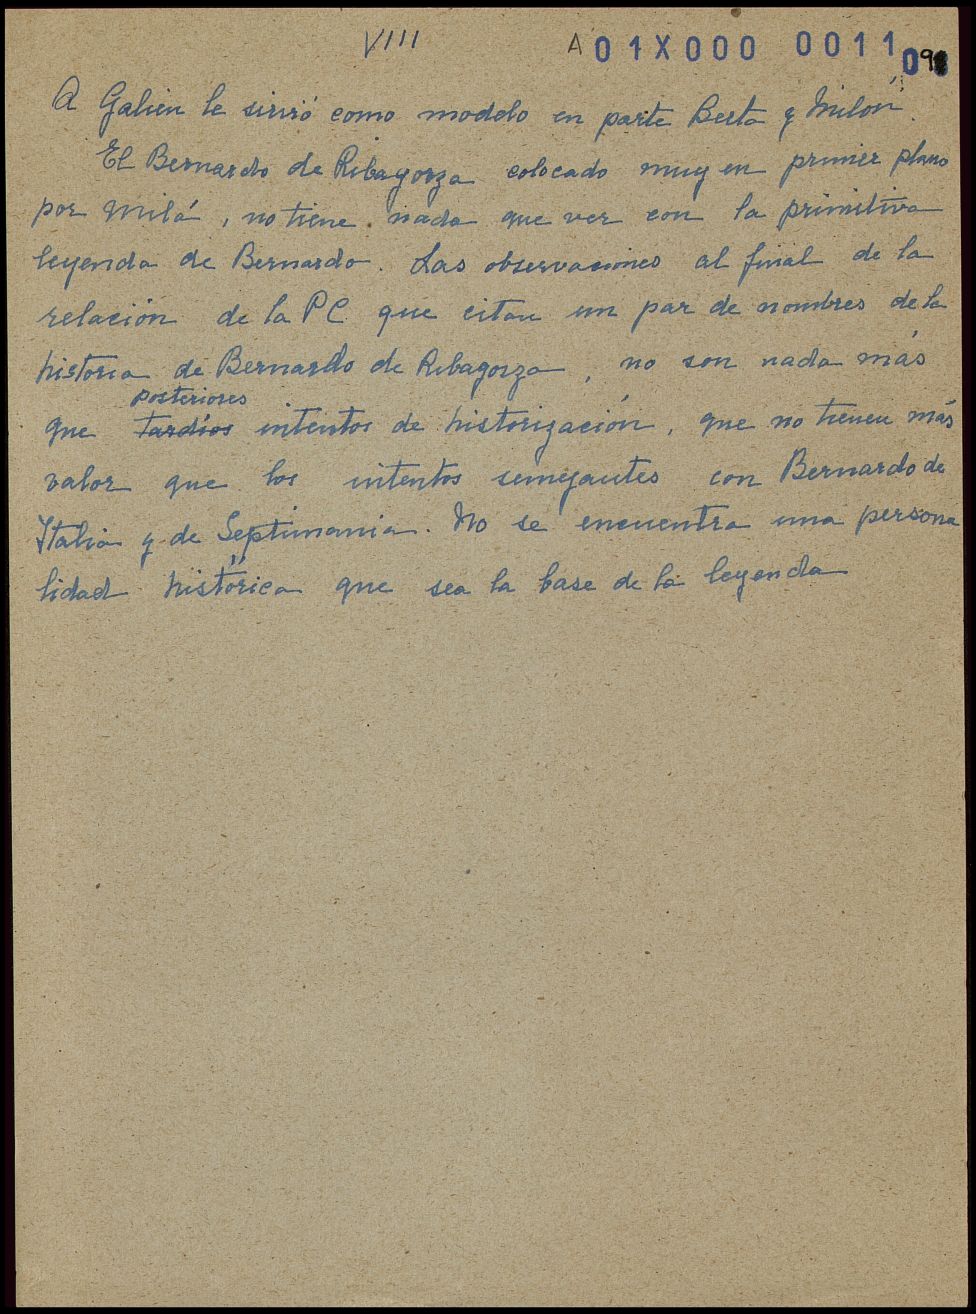 VIII
A 01X000 0011 09
A Galien le sirvió como modelo en parte Berta y Milón.
El Bernardo de Ribagorza colocado muy en primer plano
por Milá, no tiene nada que ver con la primitiva
leyenda de Bernardo. Las observaciones al final de la
relación de la PC que citan un par de nombres de la
historia de Bernardo de Ribagorza, no son nada más
posteriores
que tardíos intentos de historización, que no tienen más
valor que los intentos semejantes con Bernardo de
Italia y de Septimania. No se encuentra una persona
lidad histórica que sea la base de la leyenda